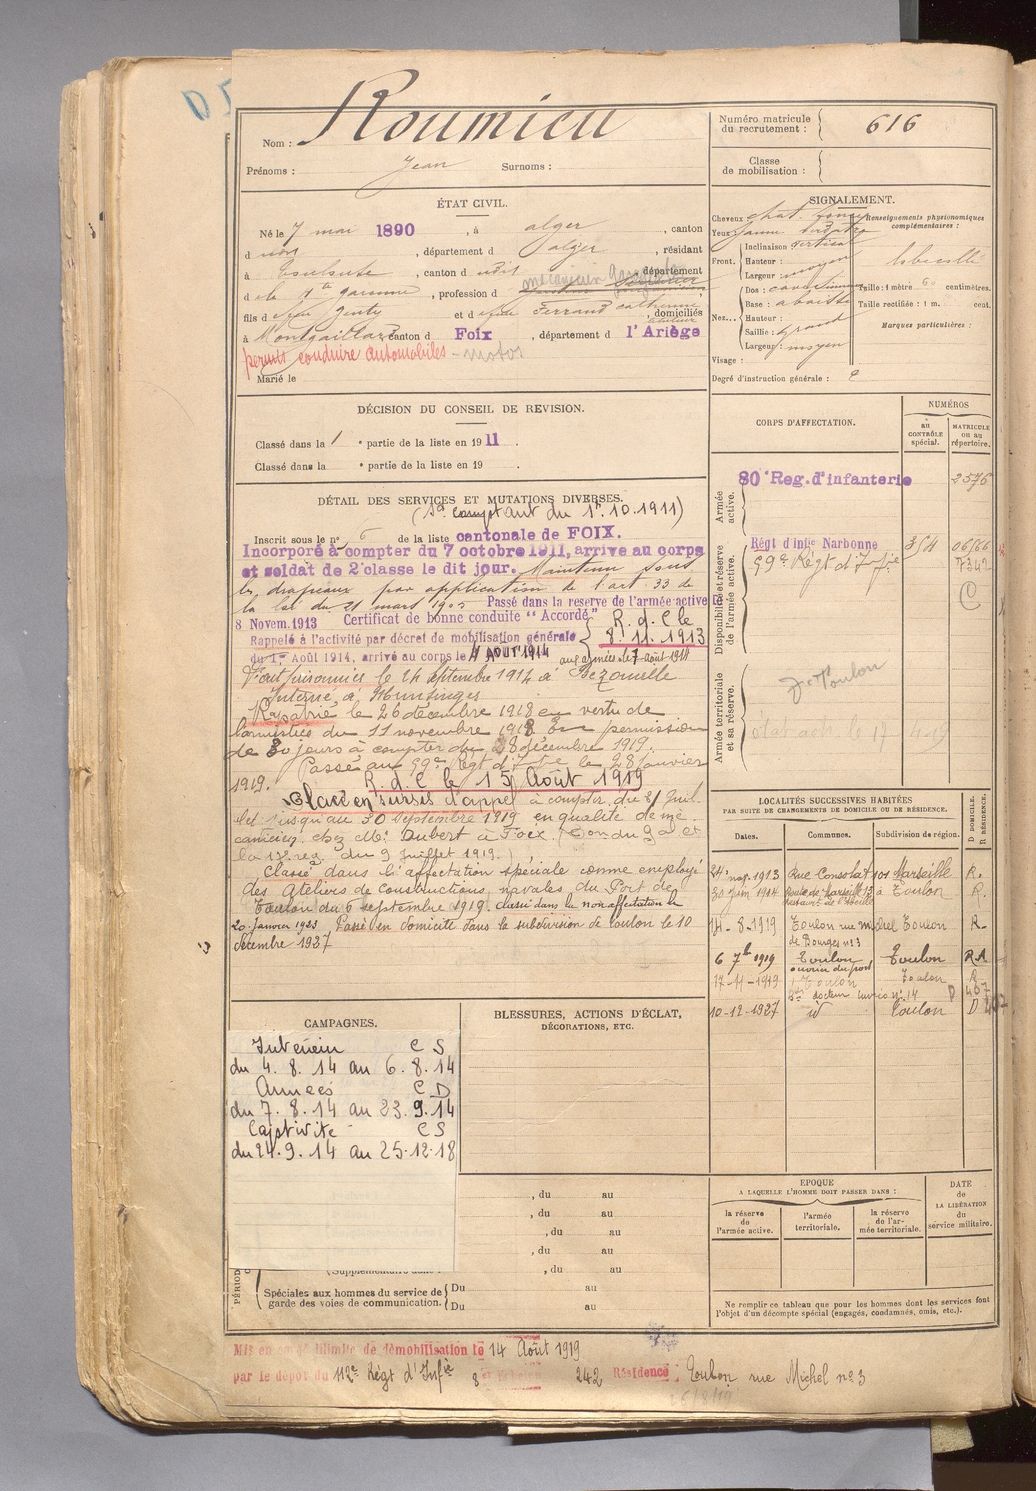 Nom : Roumieu
Prénoms : Jean Surnoms :
Numéro matricule du recrutement : 616
Classe de mobilisation :
ÉTAT CIVIL.
Né le 7 mai 1890, à alger, canton
d non, département d alger, résidant
à Toulouse, canton d udit, département
d e la Hte garonne, profession d mécanicien
fils d e feu Jenty et d e feue Ferrand catherine, domiciliés
à Montgaillard canton d Foix, département d l'Ariège
permis conduire automobiles - motos
Marié le
SIGNALEMENT.
Cheveux chat. foncé
Yeux jaune verdâtre
Front. Inclinaison vertical
Hauteur : moyen
Largeur : moyen
Nez... Dos :
Base : abaissé
Hauteur :
Saillie : grand
Largeur : moyen
Visage :
Renseignements physionomiques complémentaires :
Taille : 1 mètre 60 centimètres.
Taille rectifiée : 1 m. cent.
Marques particulières :
Degré d'instruction générale : 2
DÉCISION DU CONSEIL DE REVISION.
Classé dans la 1 e partie de la liste en 1911.
Classé dans la e partie de la liste en 19 .
CORPS D'AFFECTATION.
NUMÉROS
au CONTRÔLE spécial.
MATRICULE ou au répertoire.
Armée active.
80e Reg. d'infanterie 2576
Disponibilité et réserve de l'armée active.
Régt d'infie Narbonne 354 06/66
59e Régt d'Infie 7342
C
Armée territoriale et sa réserve.
Toulon
DÉTAIL DES SERVICES ET MUTATIONS DIVERSES.
(Se comptant du 1er.10.1911)
Inscrit sous le n° 6 de la liste cantonale de FOIX.
Incorporé à compter du 7 octobre 1911, arrivé au corps
et soldat de 2e classe le dit jour. Maintenu sous
les drapeaux par application de l'art. 33 de
la loi du 21 mars 1905 Passé dans la reserve de l'armée active le
8 Novem. 1913 Certificat de bonne conduite "Accordé" R.d.C le
Rappelé à l'activité par décret de mobilisation générale 8.11.1913
du 1er Août 1914, arrivé au corps le 4 AOUT 1914 aux armées le 7 août 1914
Fait prisonnier le 24 septembre 1914 à Bezonville
Interné à Munsingen
Rapatrié le 26 décembre 1918 en vertu de
l'armistice du 11 novembre 1918 En permission
de 30 jours à compter du 28 décembre 1919.
Passé au 59e Régt d'Infie le 28 Janvier
1919. R.d.C le 15 Août 1919
Placé en sursis d'appel à compter du 21 Juil-
let jusqu'au 30 septembre 1919 en qualité de mé-
canicien chez Mr Aubert à Foix (Don du Gal Ct
la 17e reg. du 9 Juillet 1919.)
Classé dans l'affectation spéciale comme employé
des Ateliers de Constructions navales du Port de
Toulon du 6 septembre 1919. classé dans la non affectation le
20 janvier 1923 Passé en domicile dans la subdivision de Toulon le 10
décembre 1927
LOCALITÉS SUCCESSIVES HABITÉES
PAR SUITE DE CHANGEMENTS DE DOMICILE OU DE RÉSIDENCE.
Dates. Communes. Subdivision de région. D DOMICILE. R RÉSIDENCE.
24 nov. 1913 Rue Consolat 101 Marseille R.
30 Juin 1914 Route de Marseille 13 à Toulon R.
14-8-1919 Toulon rue Michel Toulon R.
de Bourges n° 3
6 7bre 1919 Toulon Toulon RA
ouvrier du port
17-11-1919 Toulon Toulon R
n° 14 D 467
10-12-1927 id Toulon D 467
CAMPAGNES.
Intérieur C S
du 4.8.14 au 6.8.14
Armées C D
du 7.8.14 au 23.9.14
Captivité C S
du 24.9.14 au 25.12.18
BLESSURES, ACTIONS D'ÉCLAT,
DÉCORATIONS, ETC.
, du au
, du au
, du au
, du au
, du au
Spéciales aux hommes du service de garde des voies de communication. Du au
Du au
EPOQUE
A LAQUELLE L'HOMME DOIT PASSER DANS :
la réserve de l'armée active.
l'armée territoriale.
la réserve de l'armée territoriale.
DATE de LA LIBÉRATION du service militaire.
Ne remplir ce tableau que pour les hommes dont les services font
l'objet d'un décompte spécial (engagés, condamnés, omis, etc.).
Mis en congé illimité de démobilisation le 14 Août 1919
par le dépôt du 112e Régt d'Infie 8e 242 Résidence Toulon rue Michel n° 3